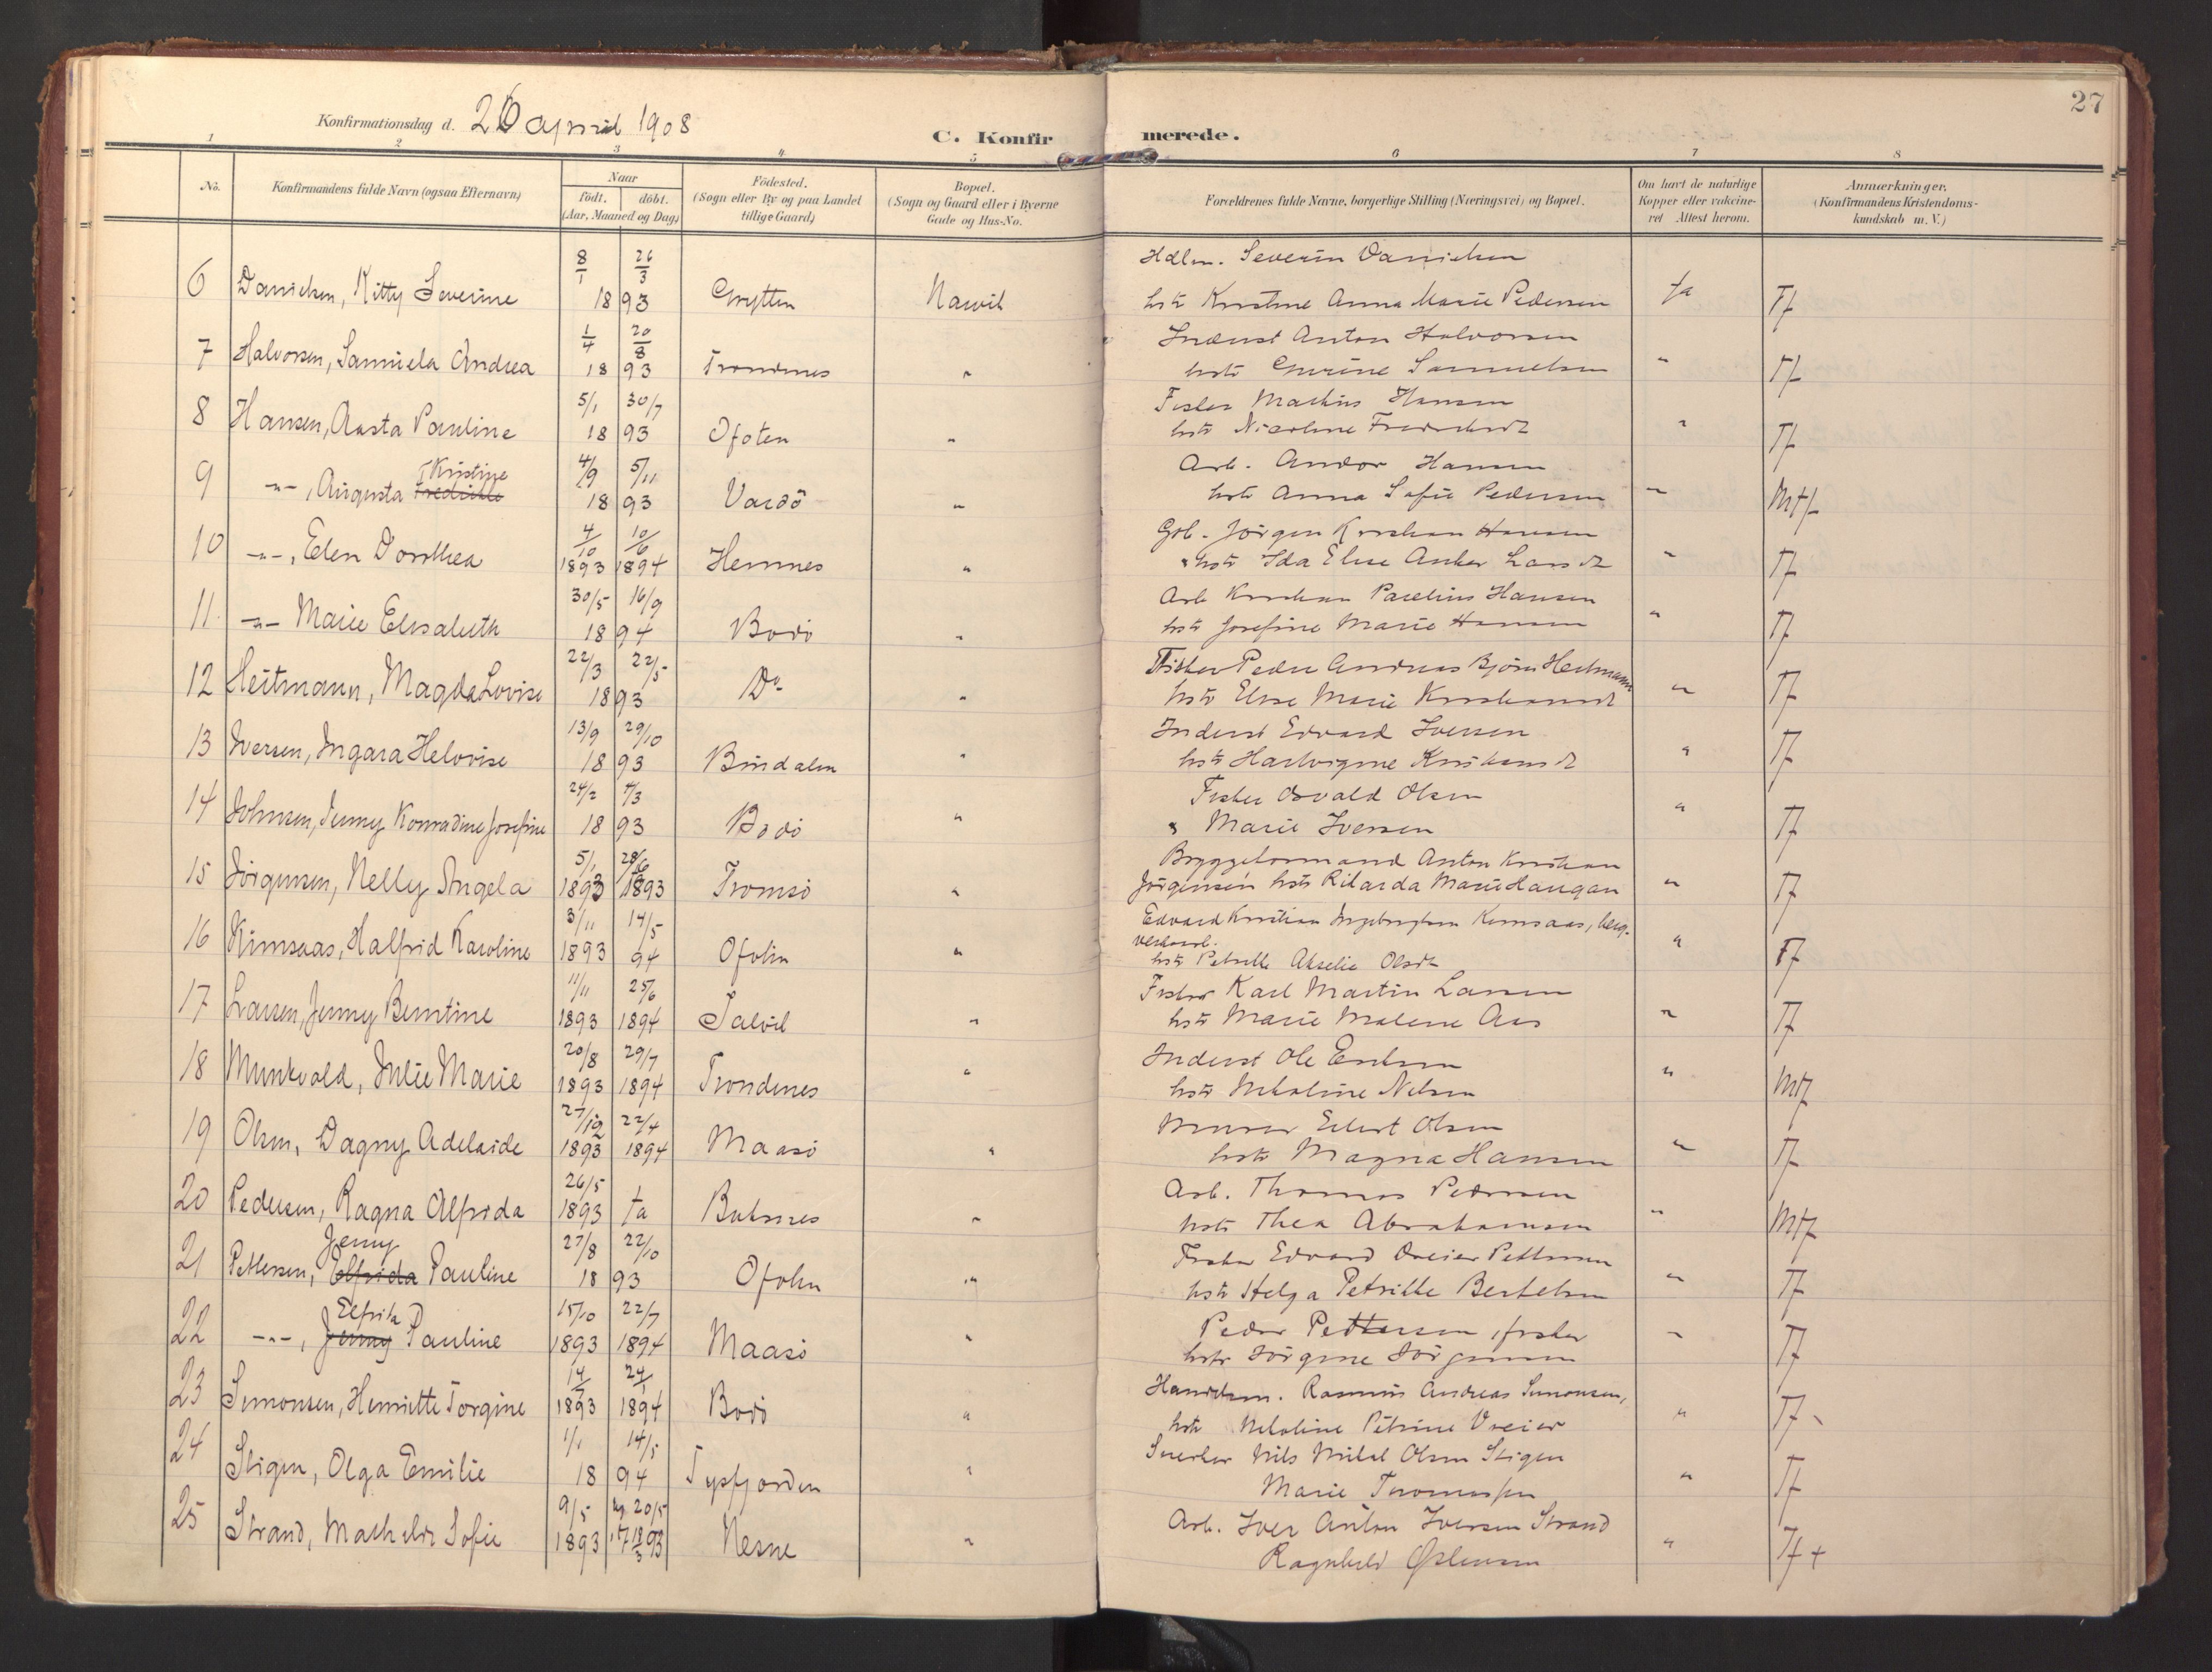 27
Konfirmationsdag d. 26 april 1908
C. Konfirmerede.
1 2 3 4 5 6 7 8
No.
Konfirmandens fulde Navn (ogsaa Efternavn)
Naar
födt. döbt.
(Aar, Maaned og Dag)
Födested.
(Sogn eller By og paa Landet
tillige Gaard)
Bopæl.
(Sogn og Gaard eller i Byerne
Gade og Hus-No.
Forældrenes fulde Navne, borgerlige Stilling (Næringsvei) og Bopæl.
Om havt de naturlige
Kopper eller vakcine-
ret Attest herom.
Anmærkninger.
(Konfirmandens Kristendoms-
kundskab m. V.)
8/1 26/3 Hdlm. Severin Danielsen
6 Danielsen, Kitty Severine 18 93 Grytten Narvik hstr Kristine Anna Marie Pedersen ja Tf
1/4 20/8 Inderst Anton Halvorsen
7 Halvorsen, Samuela Andrea 18 93 Trondenes " hstr Gurine Samuelsen " Tf
5/1 30/7 Fisker Markus Hansen
8 Hansen, Aasta Pauline 18 93 Ofoten " hstr Nicoline Fredriksdt " Tf
Kristine 4/9 5/11 Arb. Andor Hansen
9 -"-, Augusta Fredrikke 18 93 Vardö " hstr Anna Sofie Pedersen " Mtf
4/10 10/6 Gbr. Jörgen Kristian Hansen
10 -"-, Elen Dorthea 1893 1894 Hemnes " hstr Ida Elise Anker Larsdt " Tf
30/5 16/9 Arb Kristian Paulinus Hansen
11 -"- Marie Elisabeth 18 94 Bodö " hstr Josefine Marie Hansen " Tf
22/3 22/5 Fisker Peder Andreas Björn Heitmann
12 Heitmann, Magda Lovise 18 93 Do " hstr Elise Marie Kristiansdt " Tf
13/9 29/10 Inderst Edvard Iversen
13 Iversen, Ingara Helovise 18 93 Bindalen " hstr Hartvigine Kristiansdt " Tf
24/2 4/3 Fisker Osvald Olsen
14 Johnsen, Jenny Konradine Josefine 18 93 Bodö " Marie Iversen " Tf
5/1 28/6 Bryggeformand Anton Kristian
15 Jörgensen, Nelly Angela 1893 1893 Tromsö " Jörgensen hstr Rikarda Marie Haugan " Tf
3/11 14/5 Edvard Kristian Ingebrigtsen Kimsaas, berg-
verksarb.
16 Kimsaas, Halfrid Karoline 1893 94 Ofoten " hstr Petrikke Akselie Olsdt " Tf
11/11 25/6 Fisker Karl Martin Larsen
17 Larsen, Jenny Berntine 1893 1894 Talvik " hstr Marie Malene Aas " Tf
20/8 29/7 Inderst Ole Eriksen
18 Munkvold, Julie Marie 1893 1894 Trondenes " hstr Nikoline Nilsen " Mtf
27/12 22/4 Murer Edert Olsen
19 Olsen, Dagny Adelaide 1893 1894 Maasö " hstr Magna Hansen " Tf
26/5 Arb. Thomas Pedersen
20 Pedersen, Ragna Alfrida 1893 ja Buksnes " hstr Thea Abrahamsen " Mtf
Jenny 27/8 22/10 Fisker Edvard Dreier Pettersen
21 Pettersen, Elfrida Pauline 18 93 Ofoten " hstr Helga Petrikke Bertelsen " Tf
Elfrida 15/10 22/7 Peder Pettersen, fisker
22 -"-, Jenny Pauline 1893 1894 Maasö " hstr Jörgine Jörgensen " Tf
14/7 24/1 Handelsm. Rasmus Andreas Simonsen,
23 Simonsen, Henriette Torgine 1893 1894 Bodö " hstr Nikoline Petrine Dreier " Tf
1/1 14/5 Snerker Nils Mikal Olsen Stigen
24 Stigen, Olga Emilie 18 94 Tysfjorden " Marie Thomassen " Tf
9/5 20/5 Arb. Iver Anton Iversen Strand
25 Strand, Mathilde Sofie 1893 93 Nesne " Ragnhild Østensen " Tf +